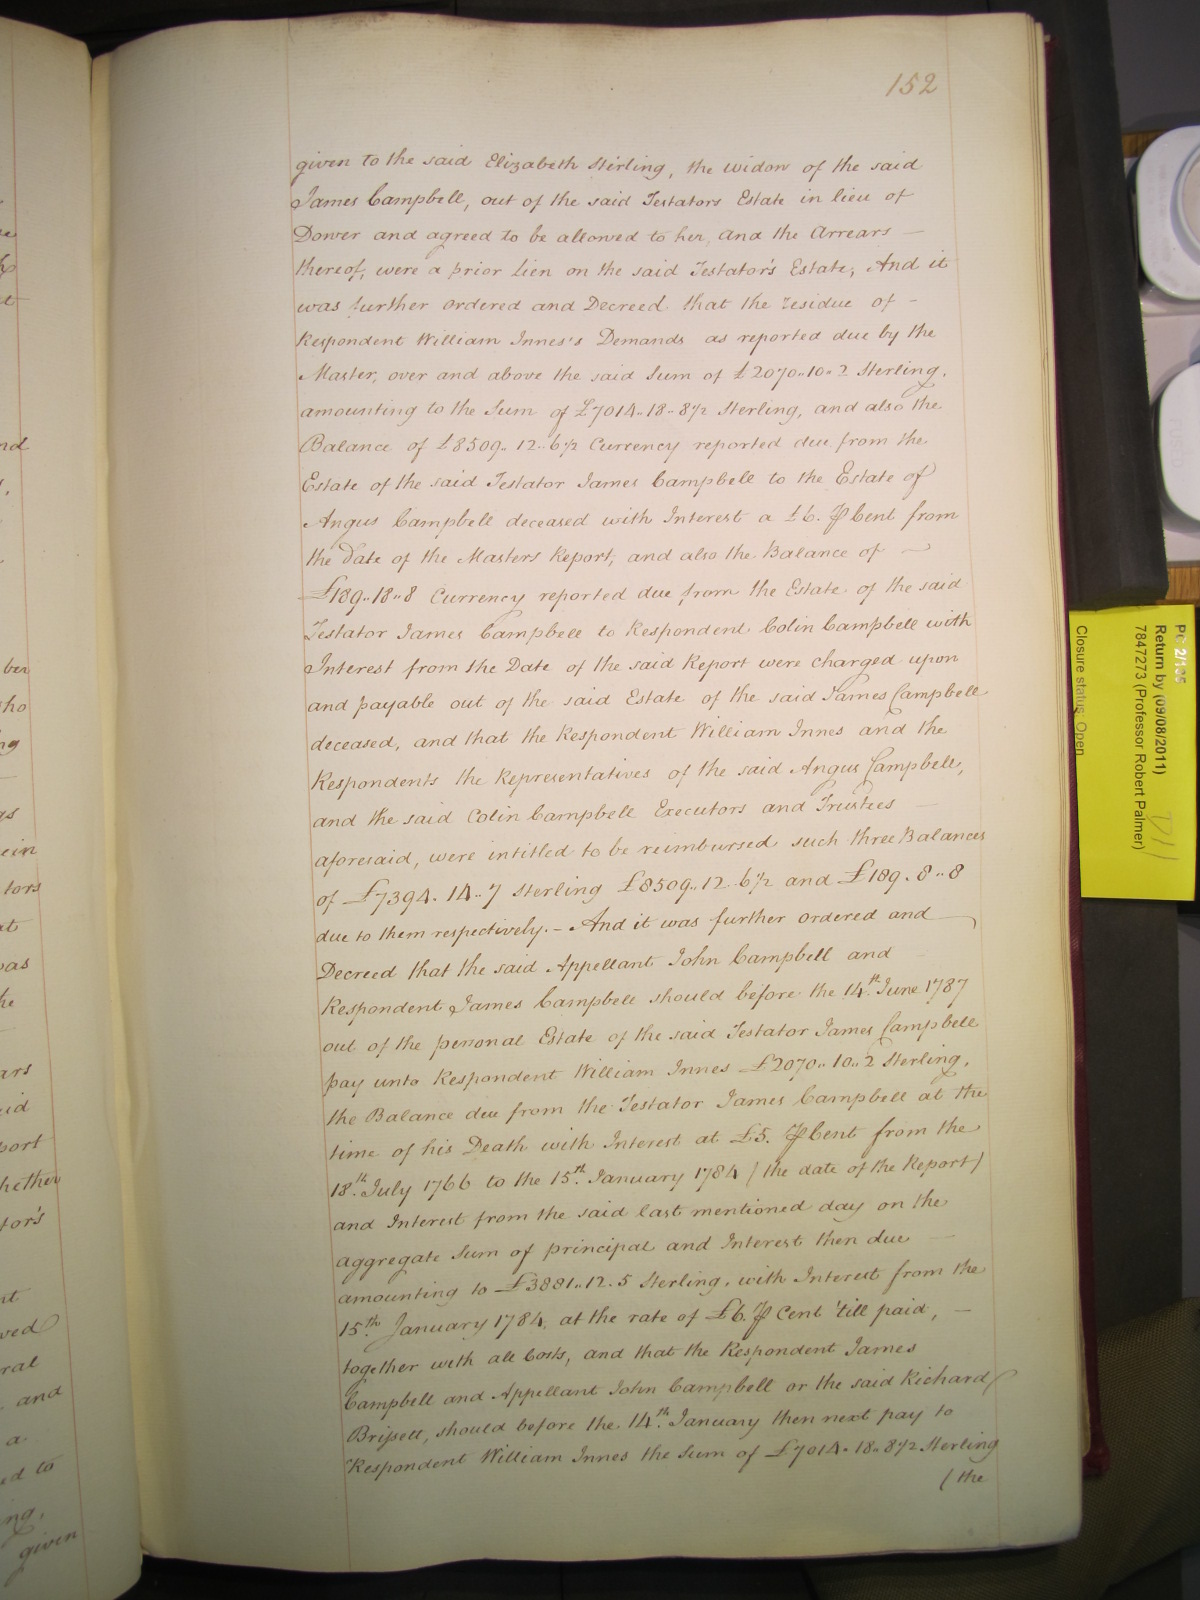 152
given to the said Elizabeth Stirling, the widow of the said
James Campbell, out of the said Testators Estate in lieu of
Dower and agreed to be allowed to her, and the Arrears —
thereof, were a prior Lien on the said Testator's Estate, And it
was further ordered and Decreed that the residue of -
Respondent William Innes's Demands as reported due by the
Master, over and above the said Sum of £2070..10..2 Sterling,
amounting to the Sum of £7014..18..8½ Sterling, and also the
Balance of £8509..12..6½ Currency reported due from the
Estate of the said Testator James Campbell to the Estate of
Angus Campbell deceased with Interest a £6. ⅌ Cent from
the Date of the Masters Report, and also the Balance of —
£189..18..8 Currency reported due from the Estate of the said
Testator James Campbell to Respondent Colin Campbell with
Interest from the Date of the said Report were charged upon
and payable out of the said Estate of the said James Campbell
deceased, and that the Respondent William Innes and the
Respondents the Representatives of the said Angus Campbell,
and the said Colin Campbell Executors and Trustees —
aforesaid, were intitled to be reimbursed such three Balances
of £7394. 14..7 Sterling £8509..12..6½ and £189.8..8
due to them respectively. - And it was further ordered and
Decreed that the said Appellant John Campbell and
Respondent James Campbell should before the 14th June 1787
out of the personal Estate of the said Testator James Campbell
pay unto Respondent William Innes £2070..10..2 Sterling,
the Balance due from the Testator James Campbell at the
time of his Death with Interest at £5. ⅌ Cent from the
18th July 1766 to the 15th January 1784 / the date of the Report /
and Interest from the said last mentioned day on the
aggregate Sum of principal and Interest then due —
amounting to £3881..12.5 Sterling, with Interest from the
15th January 1784, at the rate of £6. ⅌ Cent 'till paid, —
together with all Costs, and that the Respondent James
Campbell and Appellant John Campbell or the said Richard
Brissett, should before the 14th January then next pay to
Respondent William Innes the Sum of £7014.18..8½ Sterling
(the
PC 2/135
Return by (09/08/2011)
7847273 (Professor Robert Palmer)
Closure status: Open
D11
nd
ber
ho
ng
gs
ein
tors
at
was
he
ars
id
port
hether
tor's
nt
ved
ral
and
a
ed to
ng,
given